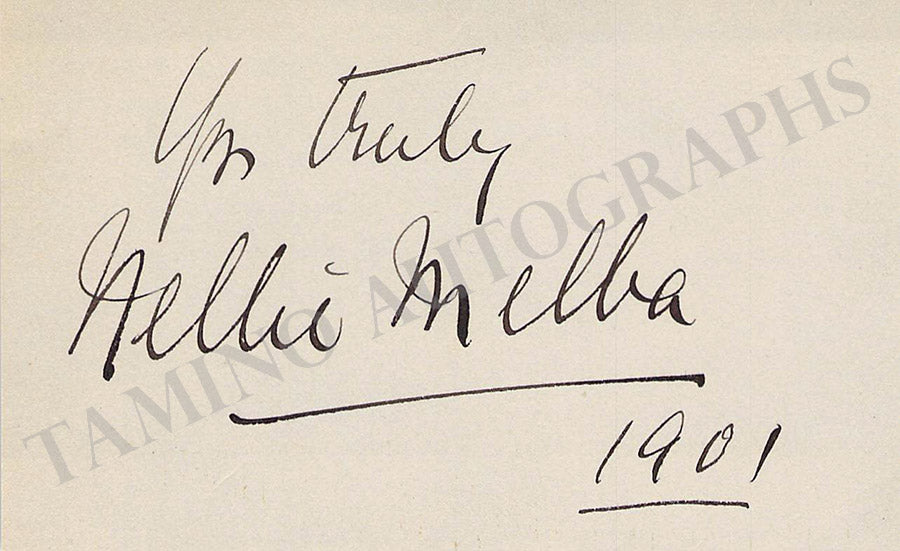 Yrs truly
Nellie Melba
1901
TAMINO AUTOGRAPHS